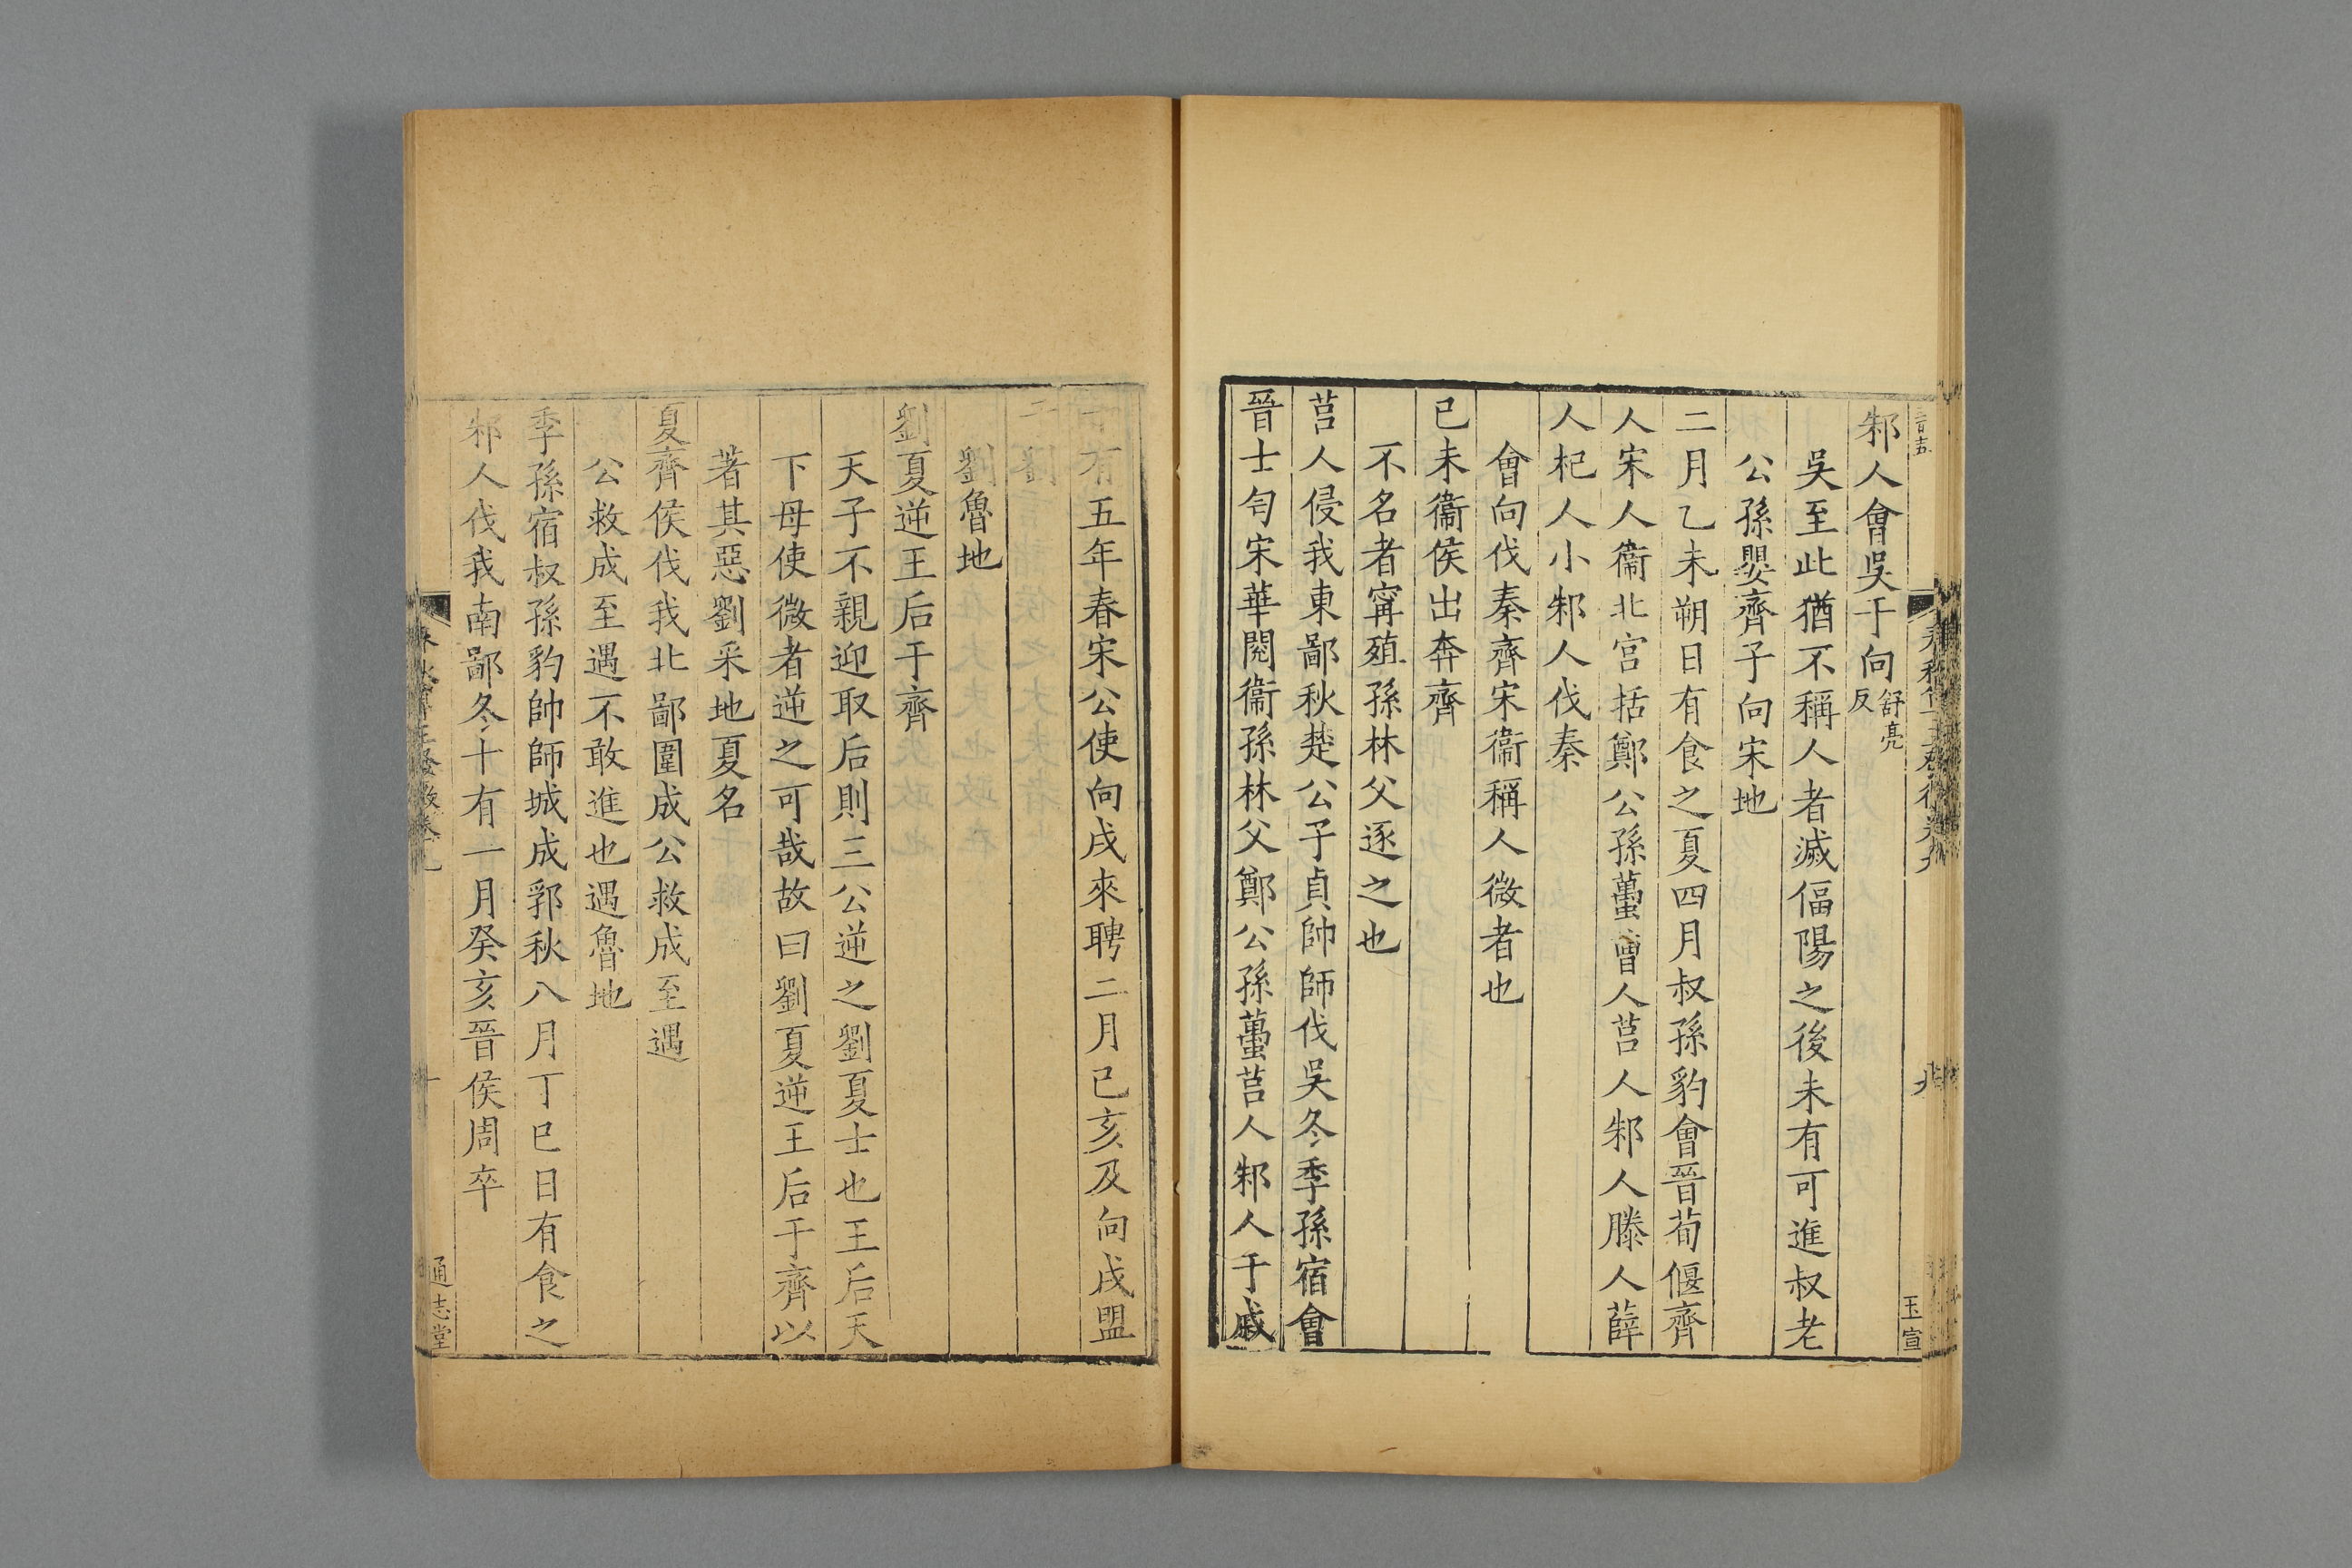 邾人會吳于向舒亮反
吳至此猶不稱人者滅偪陽之後未有可進叔老
公孫嬰齊子向宋地
二月乙未朔日有食之夏四月叔孫豹會晉荀偃齊
人宋人衞北宮括鄭公孫蠆曹人莒人邾人滕人薛
人杞人小邾人伐秦
會向伐秦齊宋衞稱人微者也
已未衞侯出奔齊
不名者甯殖孫林父逐之也
莒人侵我東鄙秋楚公子貞帥師伐吳冬季孫宿會
晉士匄宋華閱衞孫林父鄭公孫蠆莒人邾人于戚
九
玉宣
十有五年春宋公使向戌來聘二月已亥及向戌盟
于劉
劉魯地
劉夏逆王后于齊
天子不親迎取后則三公逆之劉夏士也王后天
下母使微者逆之可哉故曰劉夏逆王后于齊以
著其惡劉采地夏名
夏齊侯伐我北鄙圍成公救成至遇
公救成至遇不敢進也遇魯地
季孫宿叔孫豹帥師城成郛秋八月丁巳日有食之
邾人伐我南鄙冬十有一月癸亥晉侯周卒
通志堂